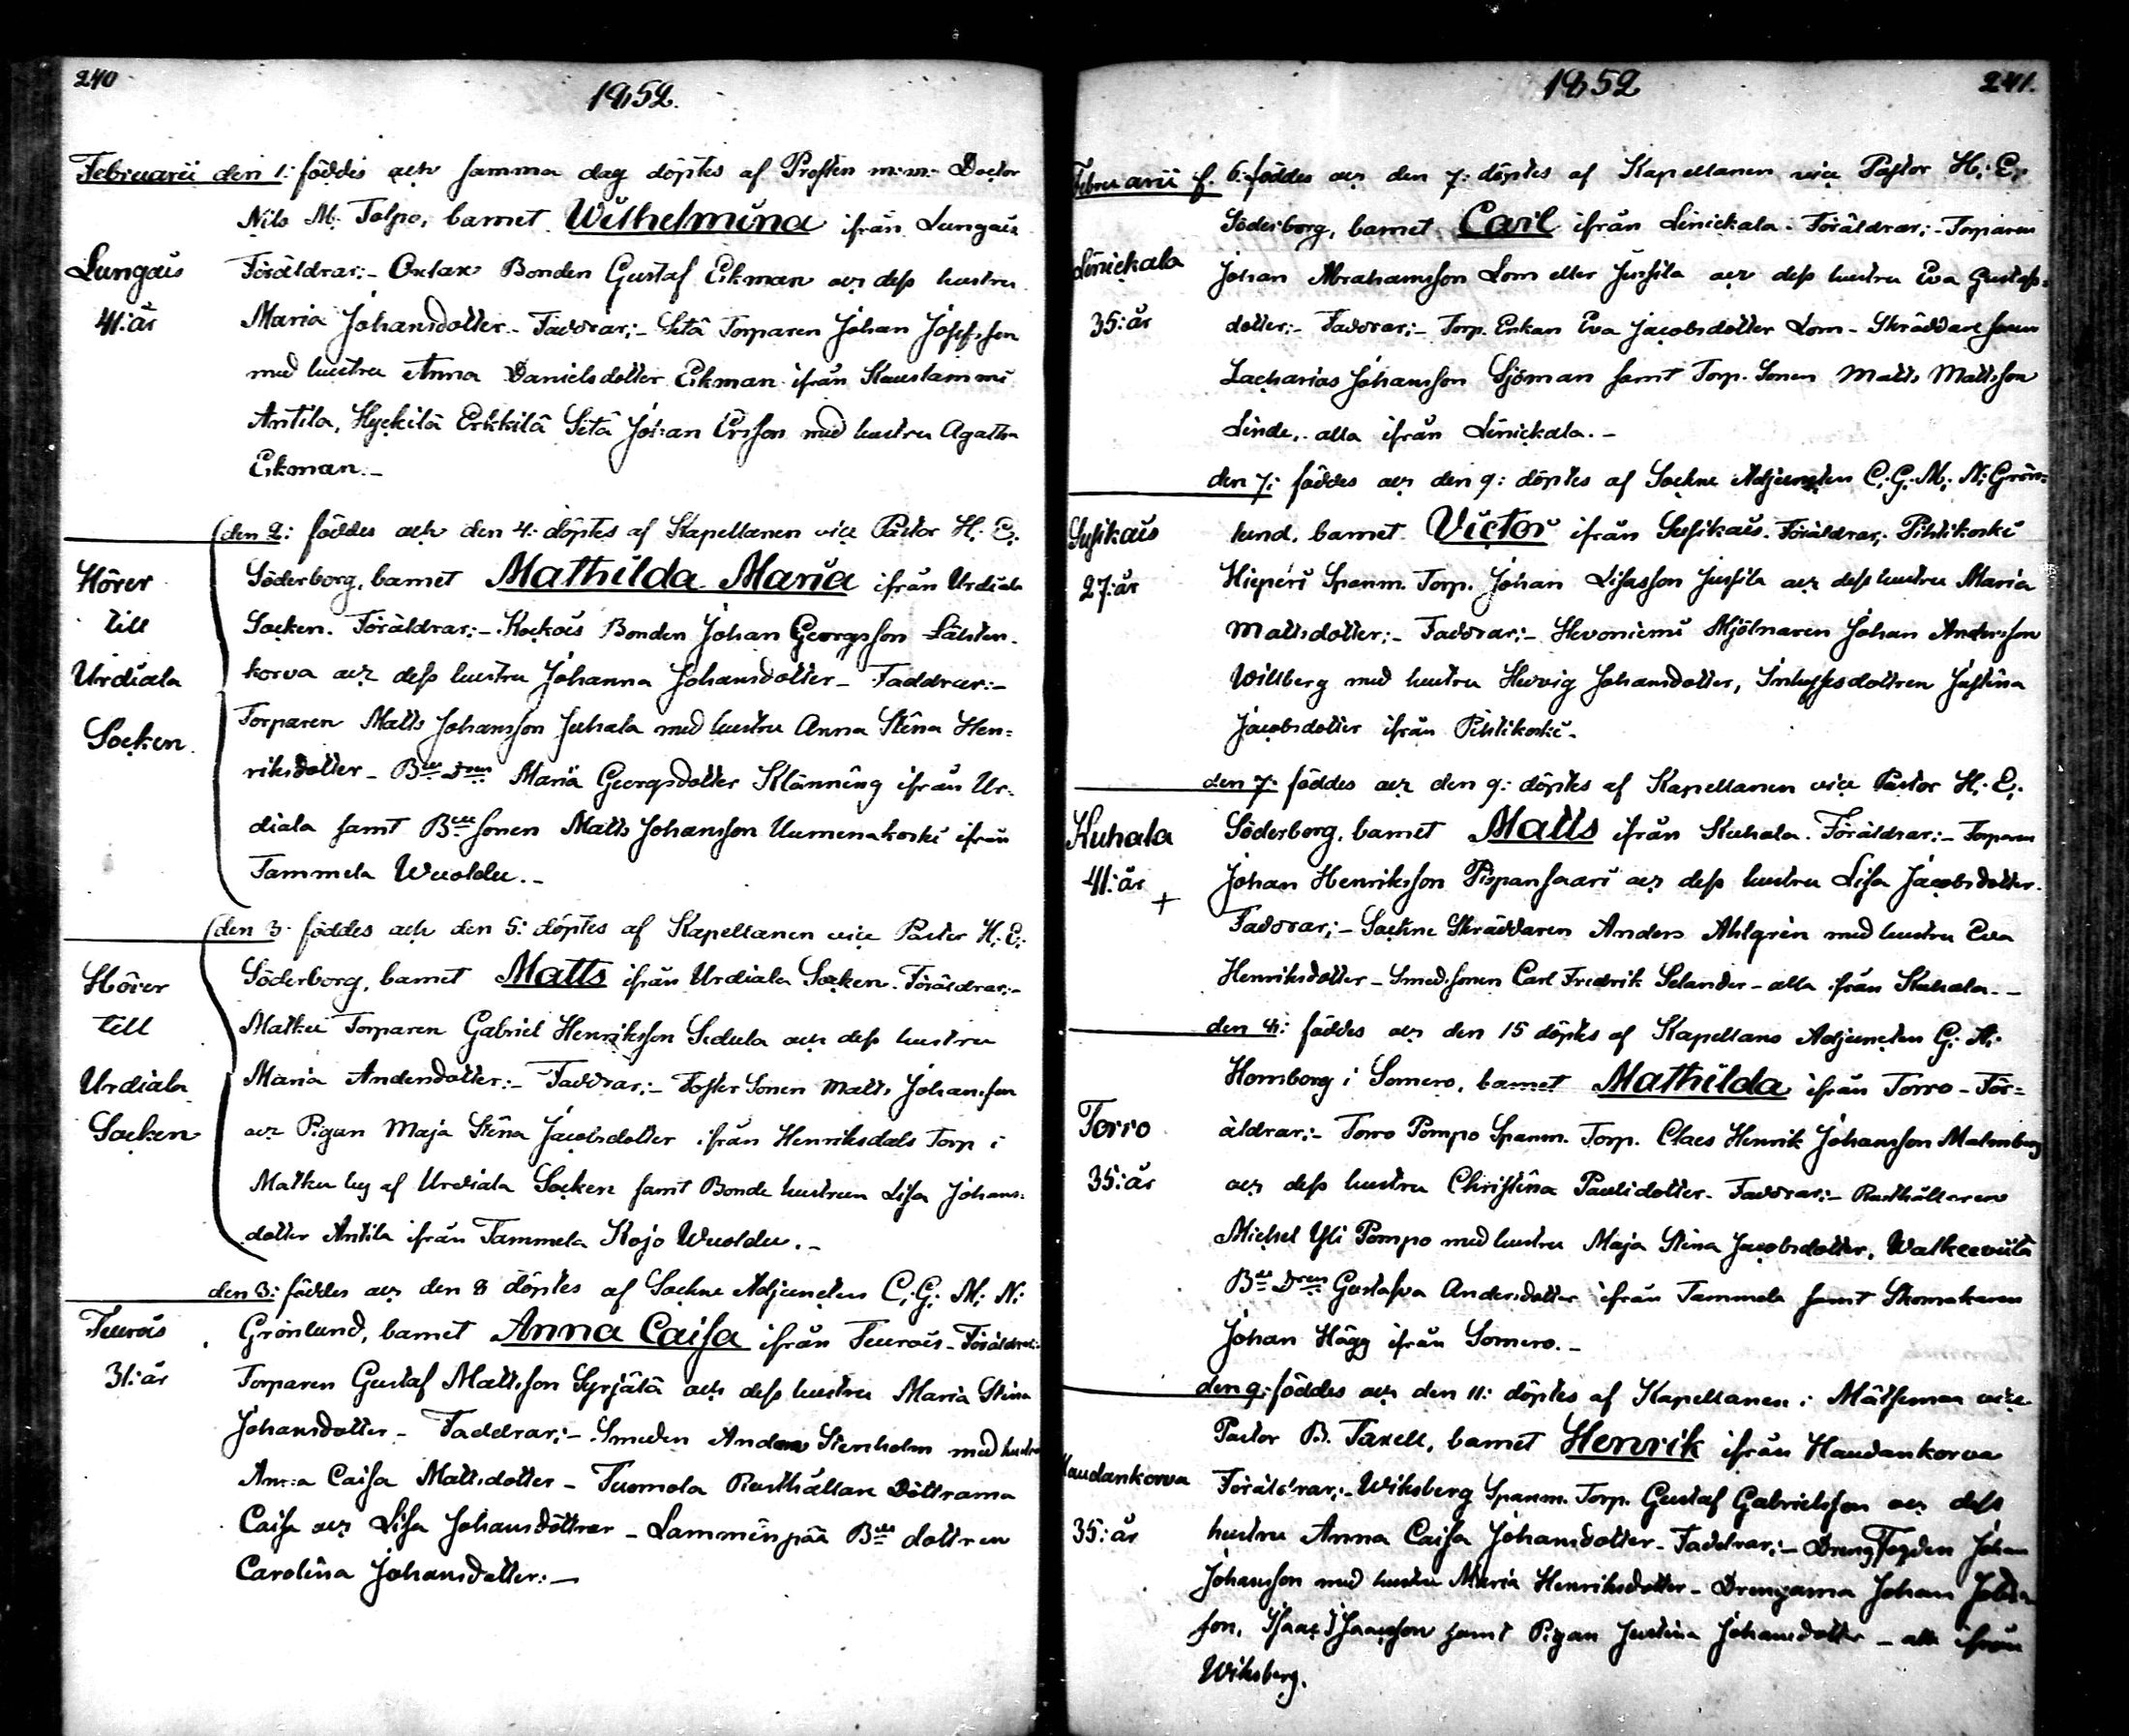 240
1852.
Februarii den 1: föddes och samma dag döptes af Prosten m:m:- Doctor
Nils M. Tolpo, barnet Wilhelmina ifrån Lungais
Lungais
41:år
Föräldrar:- Oxlax Bonden Gustaf Ekman och dess hustru
Maria Johansdotter.- Faddrar:- Sitä Torparen Johan Josefsson
med hustru Anna Danielsdotter Ekman ifrån Kaustammi
Antila, Hyckilä Erkkilä Sitä Johan Ersson med hustru Agatha
Ekman.-
den 2: föddes och den 4: döptes af Kapellanen vice Pastor H. E.
Hörer
till
Urdiala
Socken.
Söderborg, barnet Mathilda Maria ifrån Urdiala
Socken. Föräldrar:- Kockois Bonden Johan Georgsson Lähten-
korva och dess hustru Johanna Johansdotter - Faddrar:-
Torparen Matts Johansson Juhala med hustru Anna Stina Hen=
riksdotter - Bde Dren Maria Georgsdotter Klänning ifrån Ur-
diala samt Bde sonen Matts Johansson Uumenakoski ifrån
Tammela Wuoldu.-
den 3: föddes och den 5: döptes af Kapellanen vice Pastor H. E.
Hörer
till
Urdiala
Socken
Söderborg, barnet Matts ifrån Urdiala Socken. Föräldrar:-
Matku Torparen Gabriel Henriksson Sedula och dess hustru
Maria Andersdotter:- Faddrar:- Foster Sonen Matts Johansson
och Pigan Maja Stina Jacobsdotter ifrån Henriksdals Torp i
Matku by af Urdiala Socken samt Bonde hustrun Lisa Johans=
dotter Antila ifrån Tammela Kojo Wuoldu.-
den 3: föddes och den 8 döptes af Sockne Adjuncten C. G. M. N.
Teurois
31:år
Grönlund, barnet Anna Caisa ifrån Teurois - Föräldrar:
Torparen Gustaf Mattsson Syrjälä och dess hustru Maria Stina
Johansdotter - Faddrar:- Smeden Anders Stenholm med hustru
Anna Caisa Mattsdotter - Tuomola Rusthållare Döttrarna
Caisa och Lisa Johansdöttrar - Lamminpää Bde dottren
Carolina Johansdotter:-
1852
241.
Februarii f. 6: föddes och den 7: döptes af Kapellanen vice Pastor H. E.
Linickala
35:år
Söderborg, barnet Carl ifrån Linickala. Föräldrar:- Torparen
Johan Abrahamsson Lom eller Jussila och dess hustru Eva Gustafs=
dotter:- Faddrar:- Torp. Enkan Eva Jacobsdotter Lom - Skräddare sonen
Zacharias Johansson Sjöman samt Torp. Sonen Matts Mattsson
Linde, alla ifrån Linickala.-
den 7: föddes och den 9: döptes af Sockne Adjuncten C. G. M. N. Grön=
Susikais
27:år
lund, barnet Victor ifrån Susikais. Föräldrar:- Pihlikoski
Hieperi Spanm. Torp. Johan Lisasson Jussila och dess hustru Maria
Mattsdotter:- Faddrar:- Hevoniemi Mjölnaren Johan Andersson
Willberg med hustru Hedvig Johansdotter, Inhysesdottren Justina
Jacobsdotter ifrån Pihlikoski.
den 7: föddes och den 9: döptes af Kapellanen vice Pastor H. E.
Kuhala
41:år
+
Söderborg, barnet Matts ifrån Kuhala. Föräldrar:- Torparen
Johan Henriksson Pispansaari och dess hustru Lisa Jacobsdotter.
Faddrar:- Sockne Skräddaren Anders Ahlgrén med hustru Eva
Henriksdotter - Smedsonen Carl Fredrik Selander - alla ifrån Kuhala.-
föddes och den 15 döptes af Kapellans Adjuncten G. A.
Torro
35:år
Homborg i Somero, barnet Mathilda ifrån Torro - För=
äldrar:- Torro Pompo Spanm. Torp. Claes Henrik Johansson Malmberg
och dess hustru Christina Paulidotter. Faddrar:- Rusthållaren
Michel Yli Pompo med hustru Maja Stina Jacobsdotter, Walkeeviita
Bde Dren Gustafva Andersdotter ifrån Tammela samt Skomakaren
Johan Hägg ifrån Somero.-
den 9: föddes och den 11: döptes af Kapellanen i Mätsemaa vice
Haudankorva
35:år
Pastor B. Taxell, barnet Henrik ifrån Haudankorva
Föräldrar:- Wiksberg Spanm. Torp. Gustaf Gabrielsson och dess
hustru Anna Caisa Johansdotter - Faddrar:- Drengfogden Johan
Johansson med hustru Maria Henriksdotter - Drengarna Johan
son, Isaac Isaacsson samt Pigan Justina Johansdotter - alla ifrån
Wiksberg.